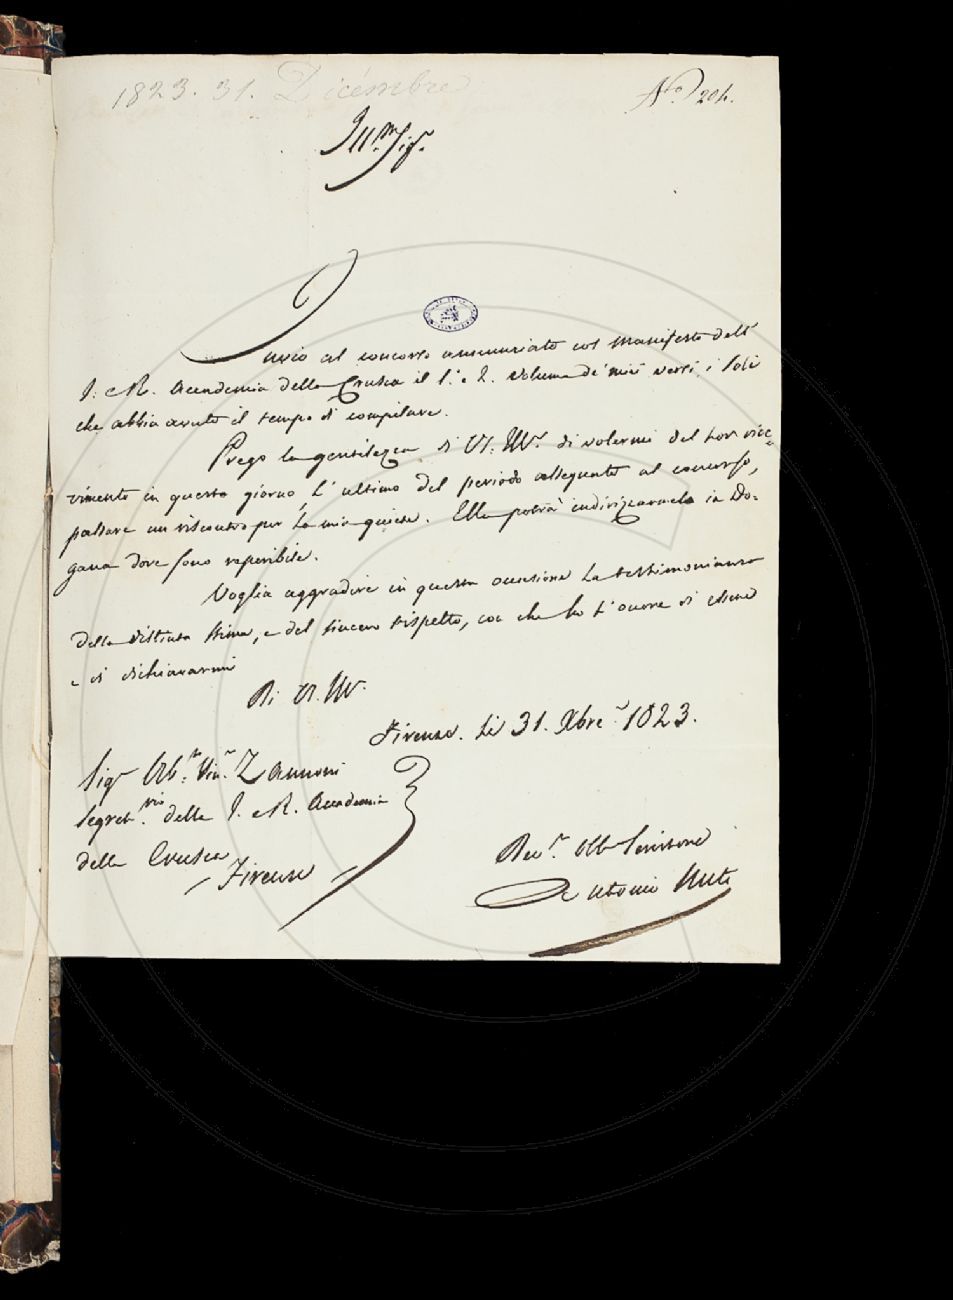 1823. 31. Dicémbre
N.º 204.
Ill.mo Sig.
Invio al concorso annunziato col Manifesto dell'
I. e R. Accademia della Crusca il 1.º e 2. Volume de' miei versi, i soli
che abbia avuto il tempo di compilare.
Prego la gentilezza di V. Ill. di volermi del lor rice=
vimento in questo giorno, l'ultimo del periodo assegnato al concorso,
passare un riscontro per la mia quiete. Ella potrà indirizzarmelo in Do=
gana dove sono reperibile.
Voglia aggradire in questa occasione la testimonianza
della distinta stima, e del sincero rispetto, con che ho l'onore di essere
e di dichiararmi
Di V. Ill.
Firenze. Li 31. Xbre 1823.
Sig.r Ab.te Zannoni
Segret.rio della I. e R. Accademia
della Crusca
Firenze
Dev.o Obb. Servitore
Antonio Nuti